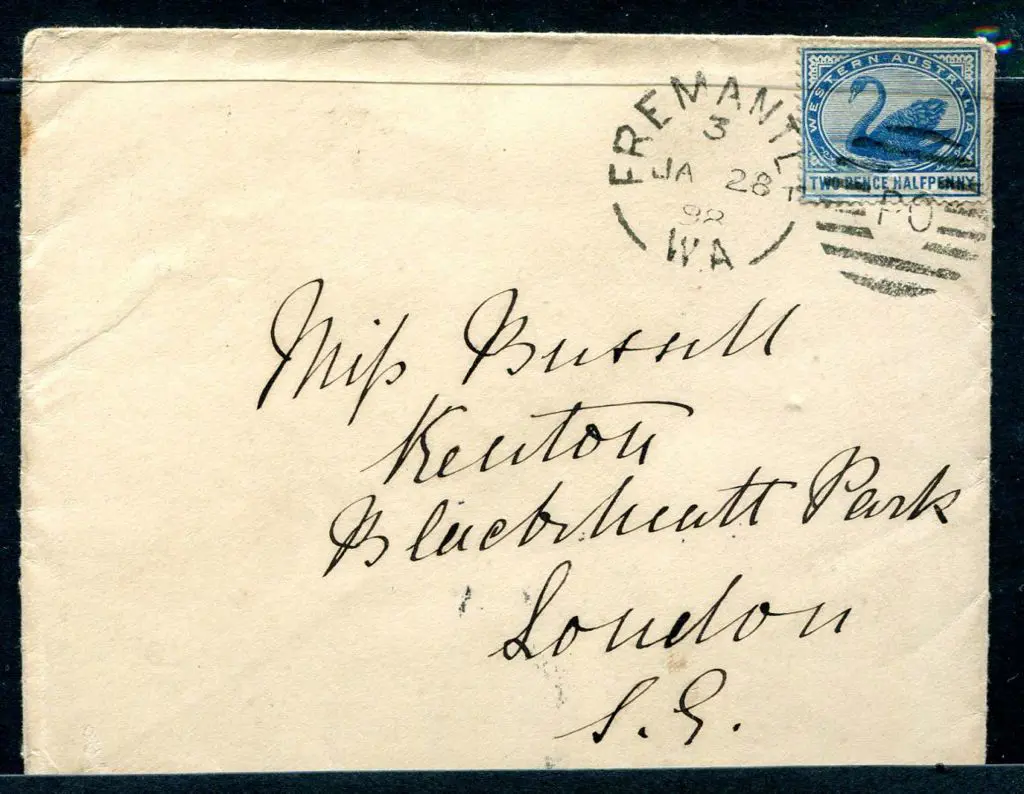 WESTERN AUSTRALIA
TWO PENCE HALFPENNY
FREMANTLE
3
JA 28
98
WA
PO
Miss Bussell
Kenton
Blackheath Park
London
S.E.